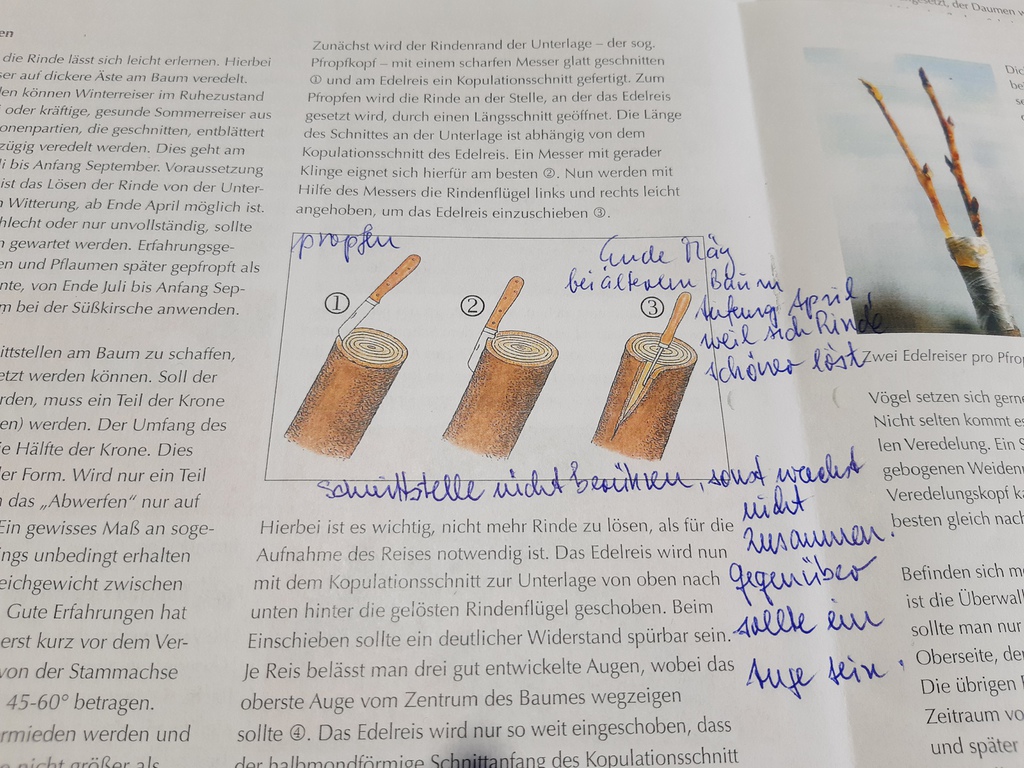 en
die Rinde lässt sich leicht erlernen. Hierbei
ser auf dickere Äste am Baum veredelt.
len können Winterreiser im Ruhezustand
oder kräftige, gesunde Sommerreiser aus
onenpartien, die geschnitten, entblättert
zügig veredelt werden. Dies geht am
li bis Anfang September. Voraussetzung
ist das Lösen der Rinde von der Unter-
n Witterung, ab Ende April möglich ist.
hlecht oder nur unvollständig, sollte
n gewartet werden. Erfahrungsge-
en und Pflaumen später gepfropft als
nte, von Ende Juli bis Anfang Sep-
m bei der Süßkirsche anwenden.
ittstellen am Baum zu schaffen,
etzt werden können. Soll der
rden, muss ein Teil der Krone
en) werden. Der Umfang des
ie Hälfte der Krone. Dies
ler Form. Wird nur ein Teil
n das „Abwerfen“ nur auf
Ein gewisses Maß an soge-
ings unbedingt erhalten
eichgewicht zwischen
Gute Erfahrungen hat
erst kurz vor dem Ver-
von der Stammachse
45-60° betragen.
rmieden werden und
e nicht größer als
Zunächst wird der Rindenrand der Unterlage – der sog.
Pfropfkopf – mit einem scharfen Messer glatt geschnitten
① und am Edelreis ein Kopulationsschnitt gefertigt. Zum
Pfropfen wird die Rinde an der Stelle, an der das Edelreis
gesetzt wird, durch einen Längsschnitt geöffnet. Die Länge
des Schnittes an der Unterlage ist abhängig von dem
Kopulationsschnitt des Edelreis. Ein Messer mit gerader
Klinge eignet sich hierfür am besten ②. Nun werden mit
Hilfe des Messers die Rindenflügel links und rechts leicht
angehoben, um das Edelreis einzuschieben ③.
propfen
Ende May
bei älteren Baum
Anfang April,
weil sich Rinde
schöner löst
① ② ③
schnittstelle nicht berühren, sonst wachst
nicht
zusammen.
gegenüber
sollte ein
Auge sein.
Hierbei ist es wichtig, nicht mehr Rinde zu lösen, als für die
Aufnahme des Reises notwendig ist. Das Edelreis wird nun
mit dem Kopulationsschnitt zur Unterlage von oben nach
unten hinter die gelösten Rindenflügel geschoben. Beim
Einschieben sollte ein deutlicher Widerstand spürbar sein.
Je Reis belässt man drei gut entwickelte Augen, wobei das
oberste Auge vom Zentrum des Baumes wegzeigen
sollte ④. Das Edelreis wird nur so weit eingeschoben, dass
der halbmondförmige Schnittanfang des Kopulationsschnitt
gesetzt, der Daumen
Zwei Edelreiser pro Pfro
Vögel setzen sich gern
Nicht selten kommt es
len Veredelung. Ein S
gebogenen Weiden
Veredelungskopf k
besten gleich nach
Befinden sich m
ist die Überwal
sollte man nur
Oberseite, de
Die übrigen
Zeitraum vo
und später